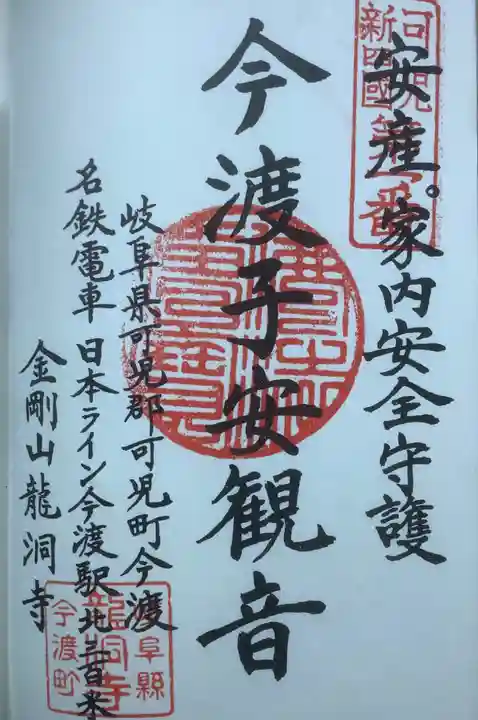 安産。家内安全守護
今渡子安観音
岐阜県可児郡可児町今渡
名鉄電車日本ライン今渡駅北三百米
金剛山龍洞寺
可児
新四國
第一番
阜縣
龍洞寺
今渡町